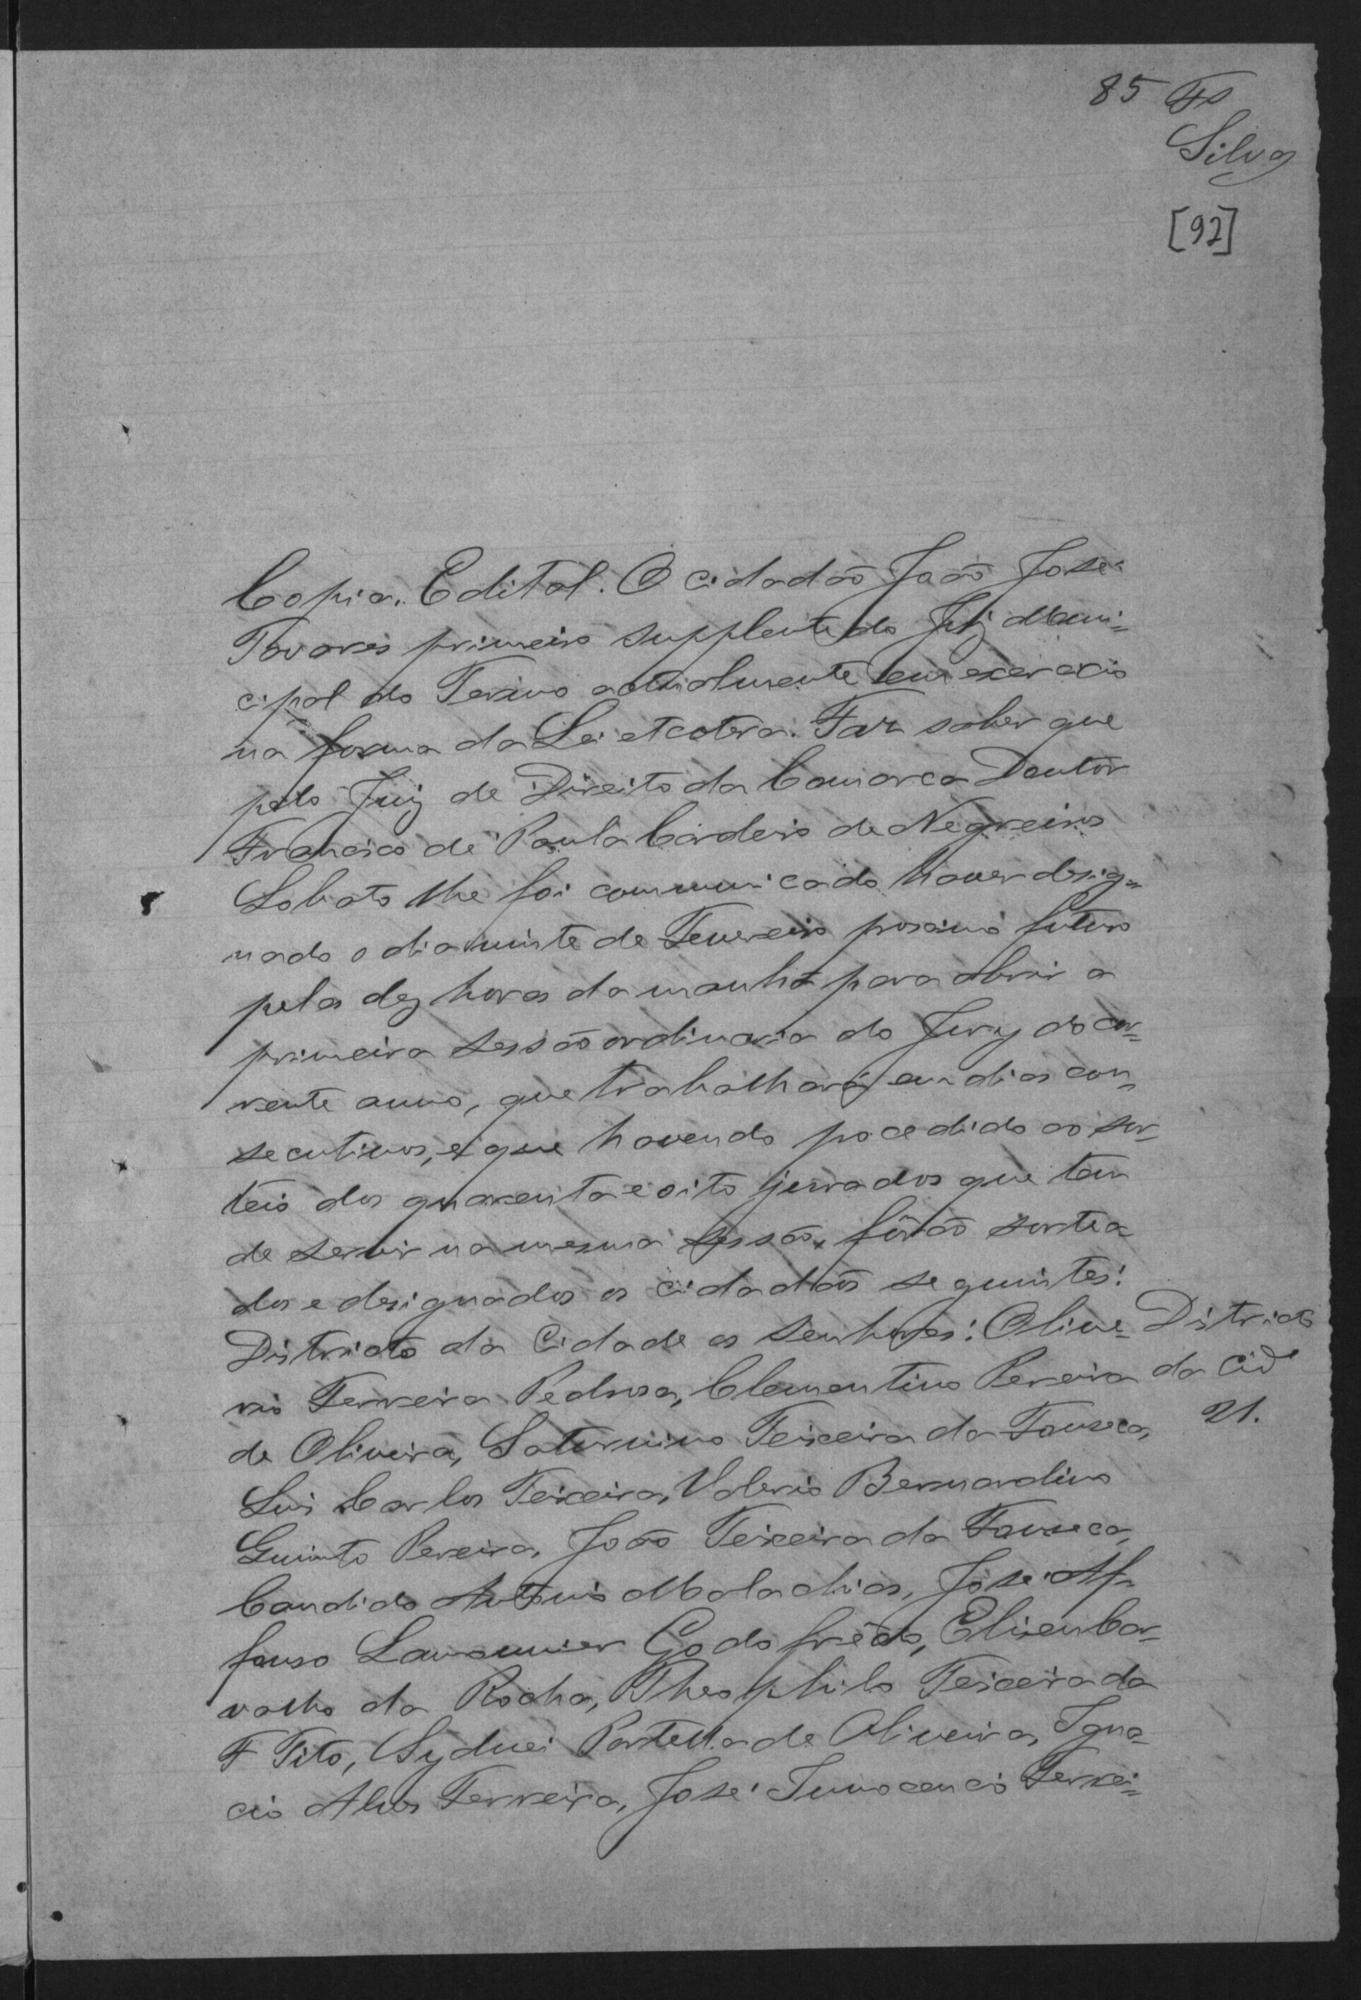 85 Fs
Silva
[92]
Copia. Edital. O cidadão João José
Tavares primeiro supplente do Juiz Muni=
cipal do Termo actualmente em exercicio
na forma da Lei etcetera. Faz saber que
pelo Juiz de Direito da Comarca Doutor
Francisco de Paula Cordeiro de Negreiros
Lobato lhe foi communicado haver desig=
nado o dia vinte de Fevereiro proximo futuro
pelas dez horas da manhã para abrir a
primeira sessão ordinaria do Jury do cor=
rente anno, que trabalhará em dias con=
secutivos, e que havendo procedido ao sor=
teio dos quarenta e oito jurados que tem
de servir na mesma sessão, forão sortea
dos e designados os cidadãos seguintes:
Districto da Cidade os senhores: Olive=
rio Ferreira Pedrosa, Clementino Pereira
de Oliveira, Saturnino Teixeira da Fonseca,
Luis Carlos Teixeira, Valerio Bernardino
Quinto Pereira, João Teixeira da Fonseca,
Candido Antonio Malachias, José Af=
fonso Godofrêdo, Car=
valho da Rocha, Theophilo Teixeira da
F Tito, Sydnei Portella de Oliveira, Igna=
cio Alves Ferreira, José Innocencio Ferrei=
Districto
da Cidᵉ
21.